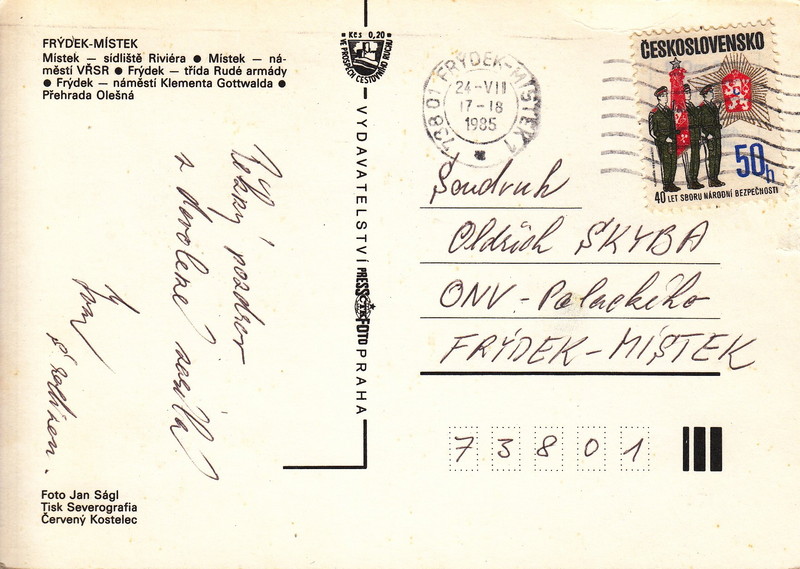 FRÝDEK-MÍSTEK
Místek — sídliště Riviéra ● Místek — ná-
městí VŘSR ● Frýdek — třída Rudé armády
● Frýdek — náměstí Klementa Gottwalda ●
Přehrada Olešná
Kčs 0,20
VE PROSPĚCH CESTOVNÍHO RUCHU
VYDAVATELSTVÍ PRESSFOTO PRAHA
ČTK
738 01 FRÝDEK-MÍSTEK 1
24-VII
17-18
1985
ČESKOSLOVENSKO
50h
40 LET SBORU NÁRODNÍ BEZPEČNOSTI
Soudruh
Oldřich ŠKYBA
ONV - Palackého
FRÝDEK-MÍSTEK
73801
Pěkný pozdrav
z dovolené zasílá
Ivan
s rodinou.
Foto Jan Ságl
Tisk Severografia
Červený Kostelec